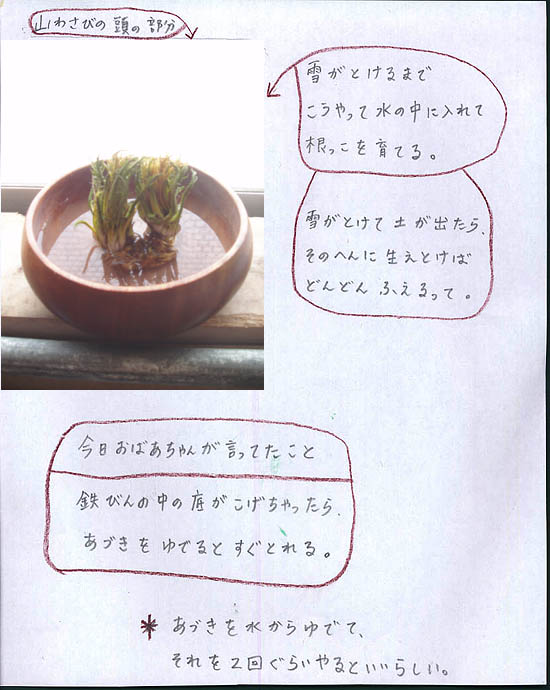 山わさびの頭の部分
雪がとけるまで
こうやって水の中に入れて
根っこを育てる。
雪がとけて土が出たら、
そのへんに生えとけば
どんどんふえるって。
今日おばあちゃんが言ってたこと
鉄びんの中の底がこげちゃったら、
あづきをゆでるとすぐとれる。
* あづきを水からゆでて、
それを2回ぐらいやるといいらしい。